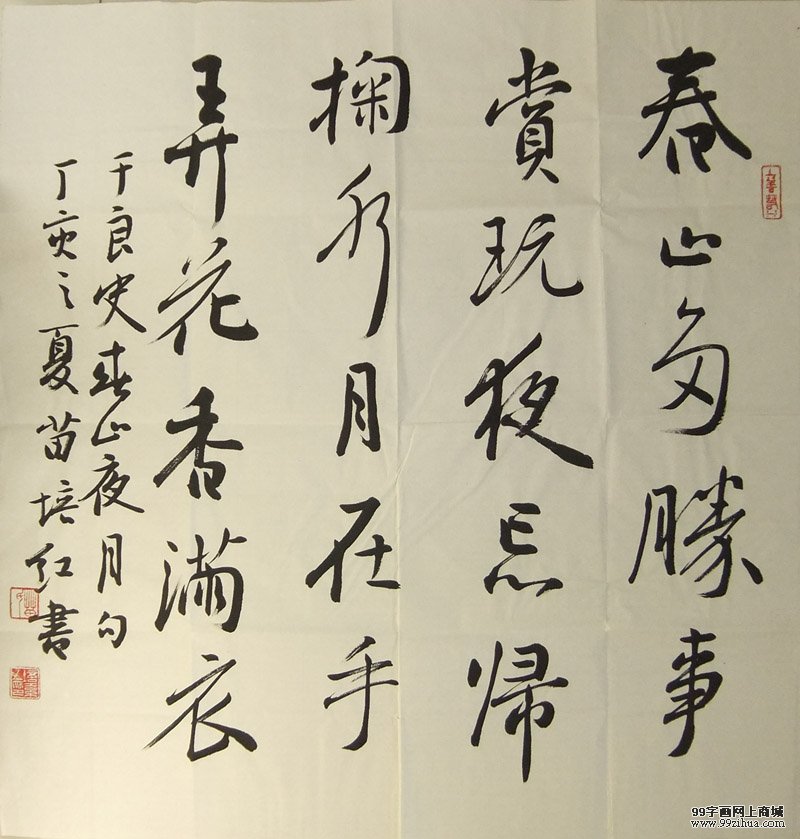 春山多勝事
賞玩夜忘帰
掬水月在手
弄花香满衣
于良史春山夜月句
丁亥之夏苗培红書
99字画网上商城
www.99zihua.com